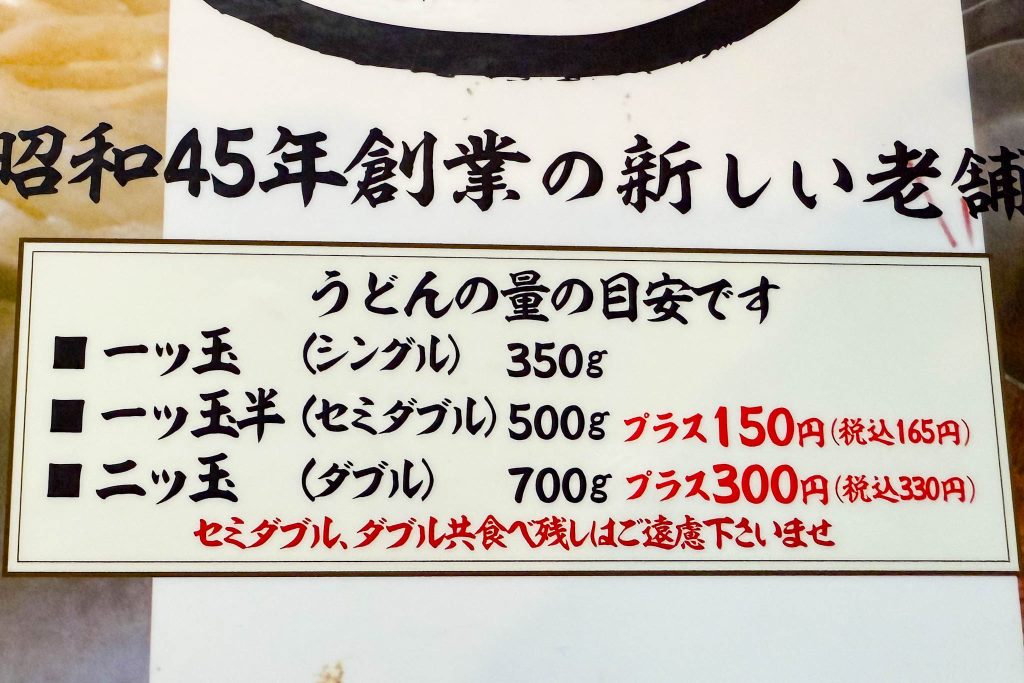 昭和45年創業の新しい老舗
うどんの量の目安です
■ 一ッ玉 (シングル) 350g
■ 一ッ玉半 (セミダブル) 500g プラス150円(税込165円)
■ 二ッ玉 (ダブル) 700g プラス300円(税込330円)
セミダブル、ダブル共食べ残しはご遠慮下さいませ